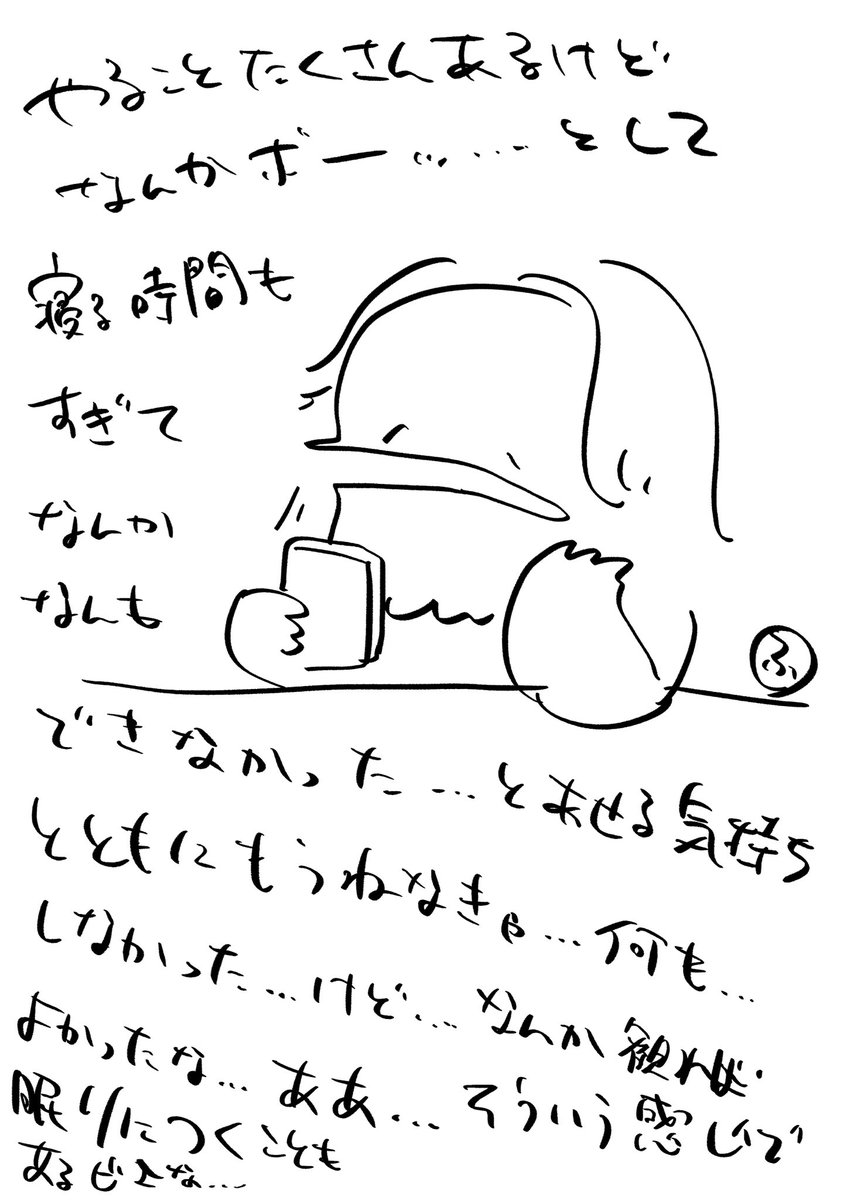 やることたくさんあるけど
なんかボー……として
寝る時間も
すぎて
なんか
なんも
ふ
できなかった…とあせる気持ち
とともにもうねなきゃ…何も…
しなかった…けど…なんか観れば
よかったな…ああ…そういう感じで
眠りにつくことも
あるビエな…